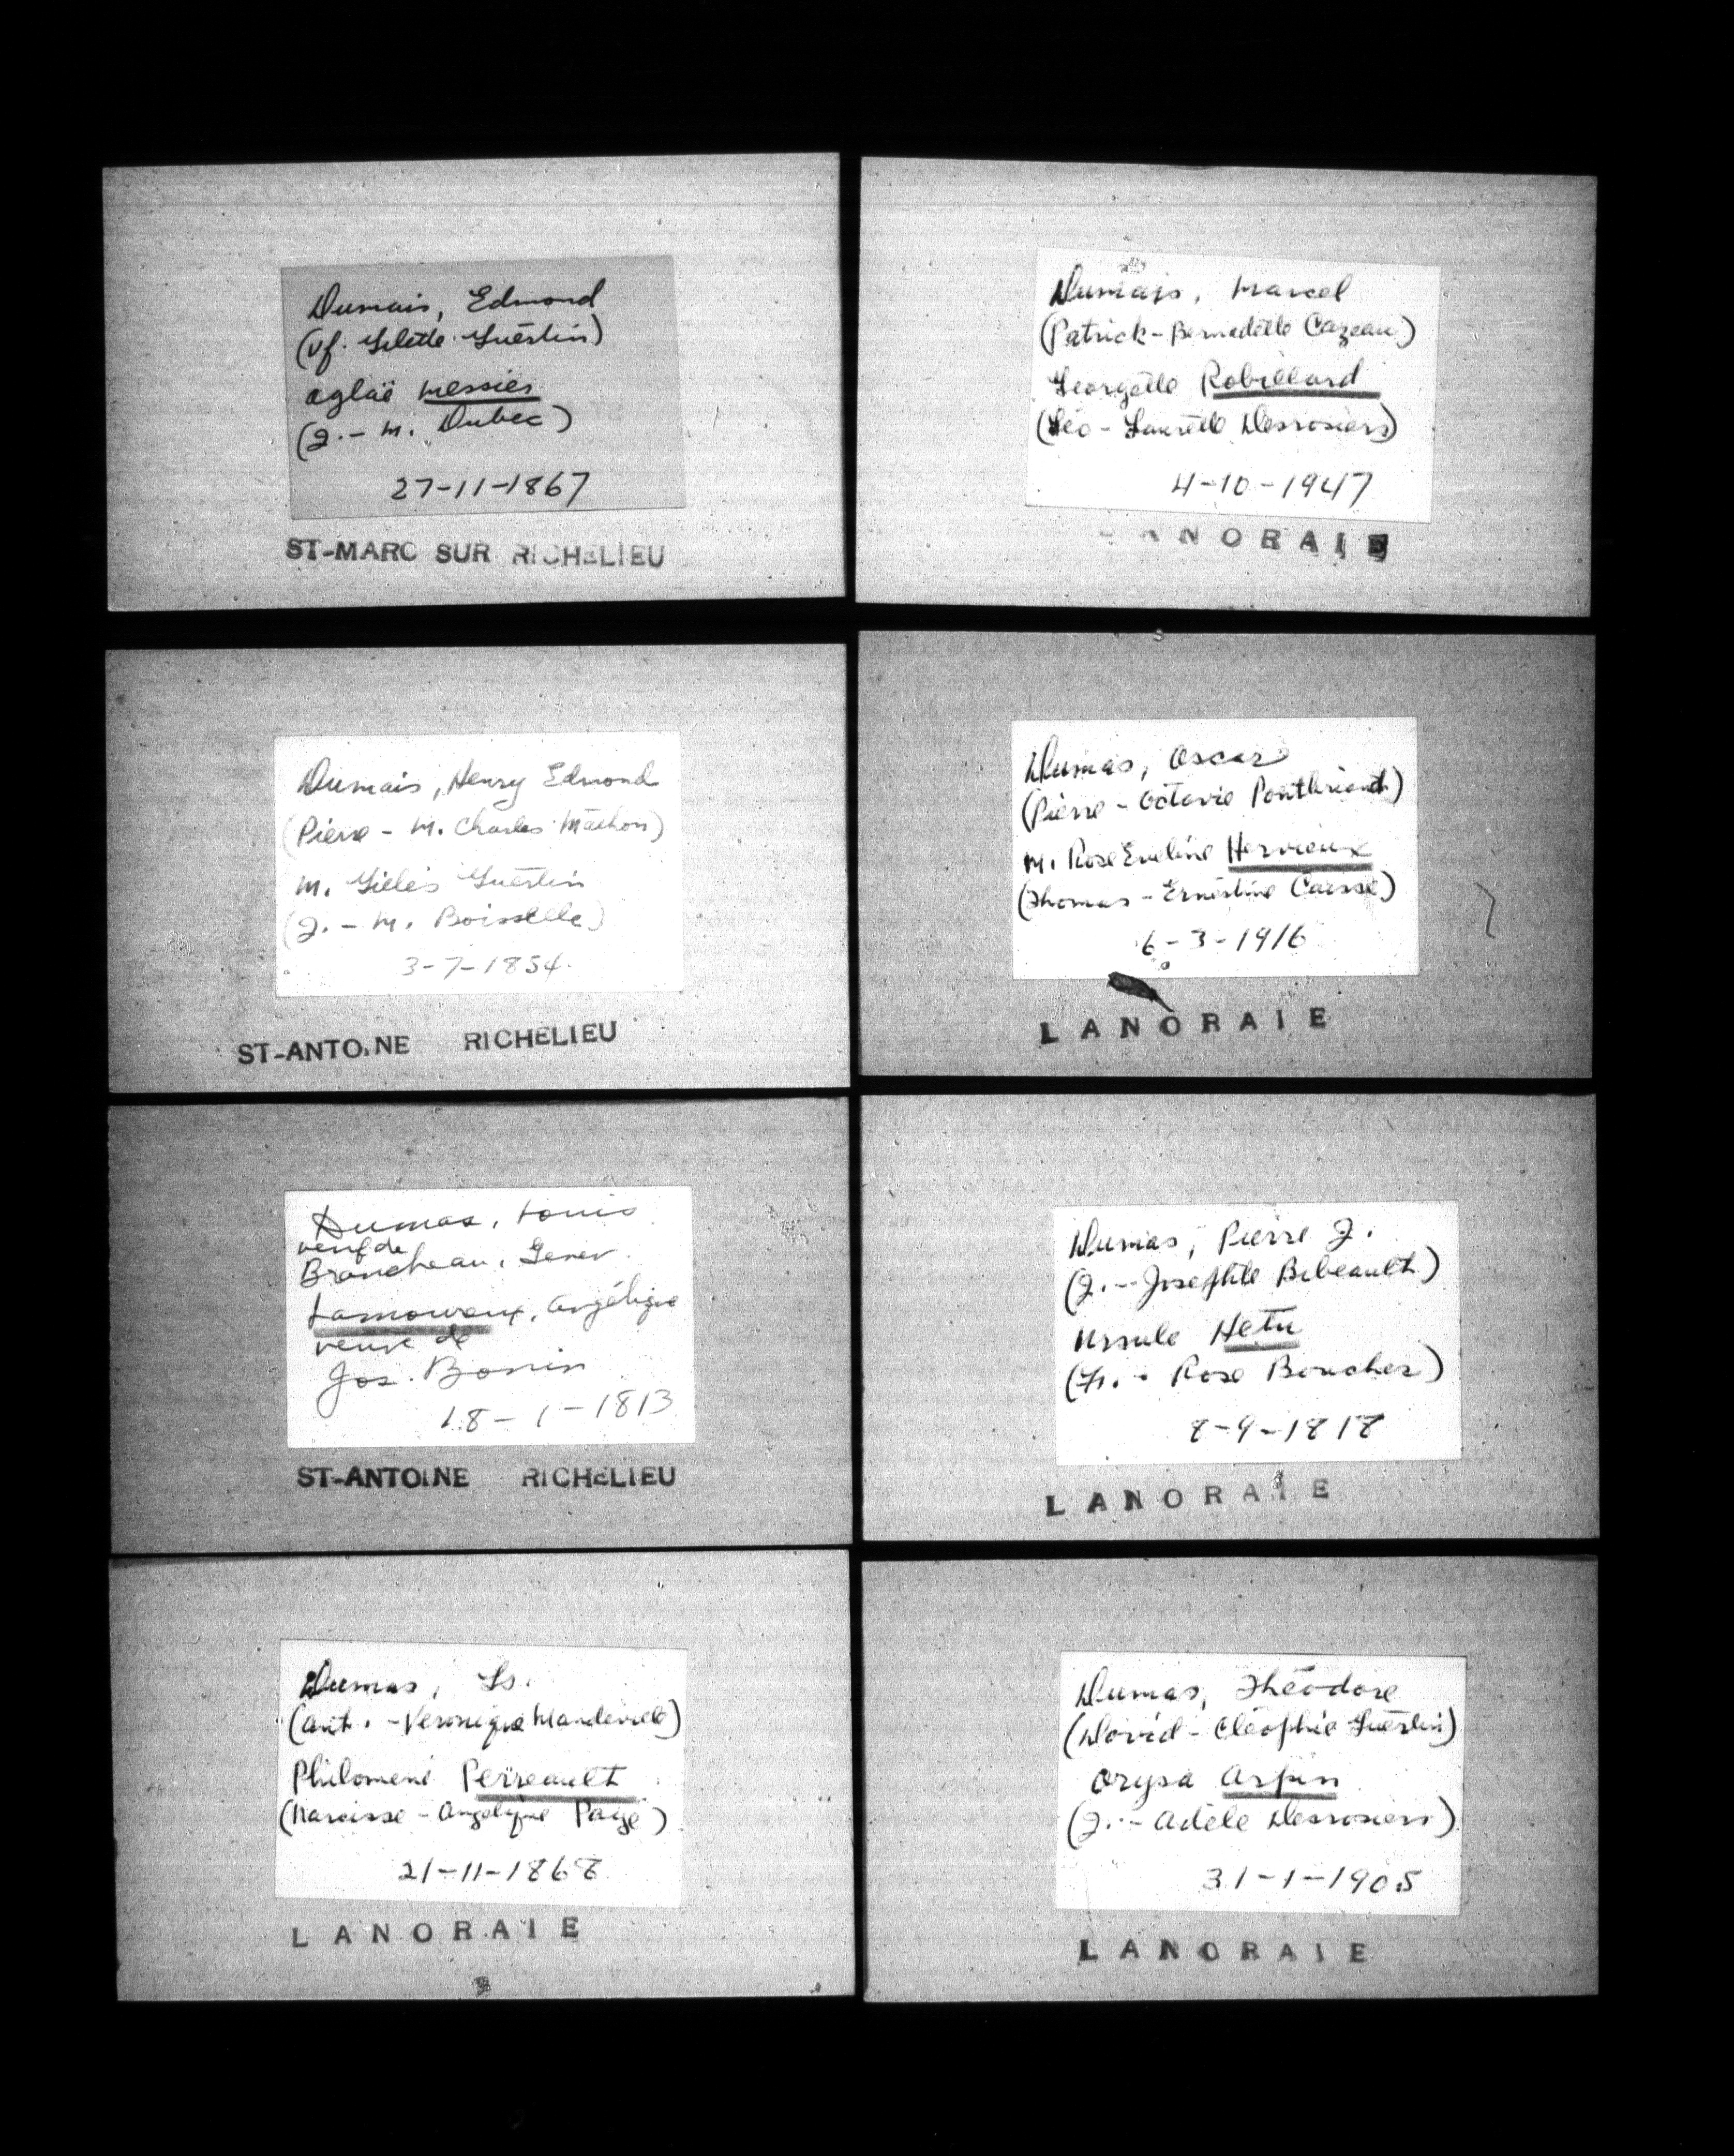 Dumais, Edmond
(Vf. Gilette Guertin)
Aglaé Messier
(J. - M. Dubec)
27-11-1867
ST-MARC SUR RICHELIEU
Dumais, Henry Edmond
(Pierre - M. Charles Mathon)
M. Guertin
(J. - M. Boisselle)
3-7-1854
ST-ANTOINE RICHELIEU
Dumas, Louis
veuf de
Brancheau, Genev.
Lamoureux, Angélique
veuve de
Jos. Bonin
18-1-1813
ST-ANTOINE RICHELIEU
Dumas, Ls.
(Ant. - Veronique Mandeville)
Philomene Perreault
(Narcisse - Angelique Paige)
21-11-1868
LANORAIE
Dumais, Marcel
(Patrick - Bernadette Cazeau)
Georgette Robillard
(Léo - Laurette Desrosiers)
4-10-1947
LANORAIE
Dumas, Oscar
(Pierre - Octavie Pontbriand)
M. Rose Eveline Hervieux
(Thomas - Ernestine Caisse)
6-3-1916
LANORAIE
Dumas, Pierre J.
(J. - Josephte Bibeault)
Ursule Hetu
(Fr. - Rose Boucher)
8-9-1818
LANORAIE
Dumas, Théodore
(David - Cléophie Guertin)
Orysa Arpin
(J. - Adèle Desrosiers)
31-1-1905
LANORAIE